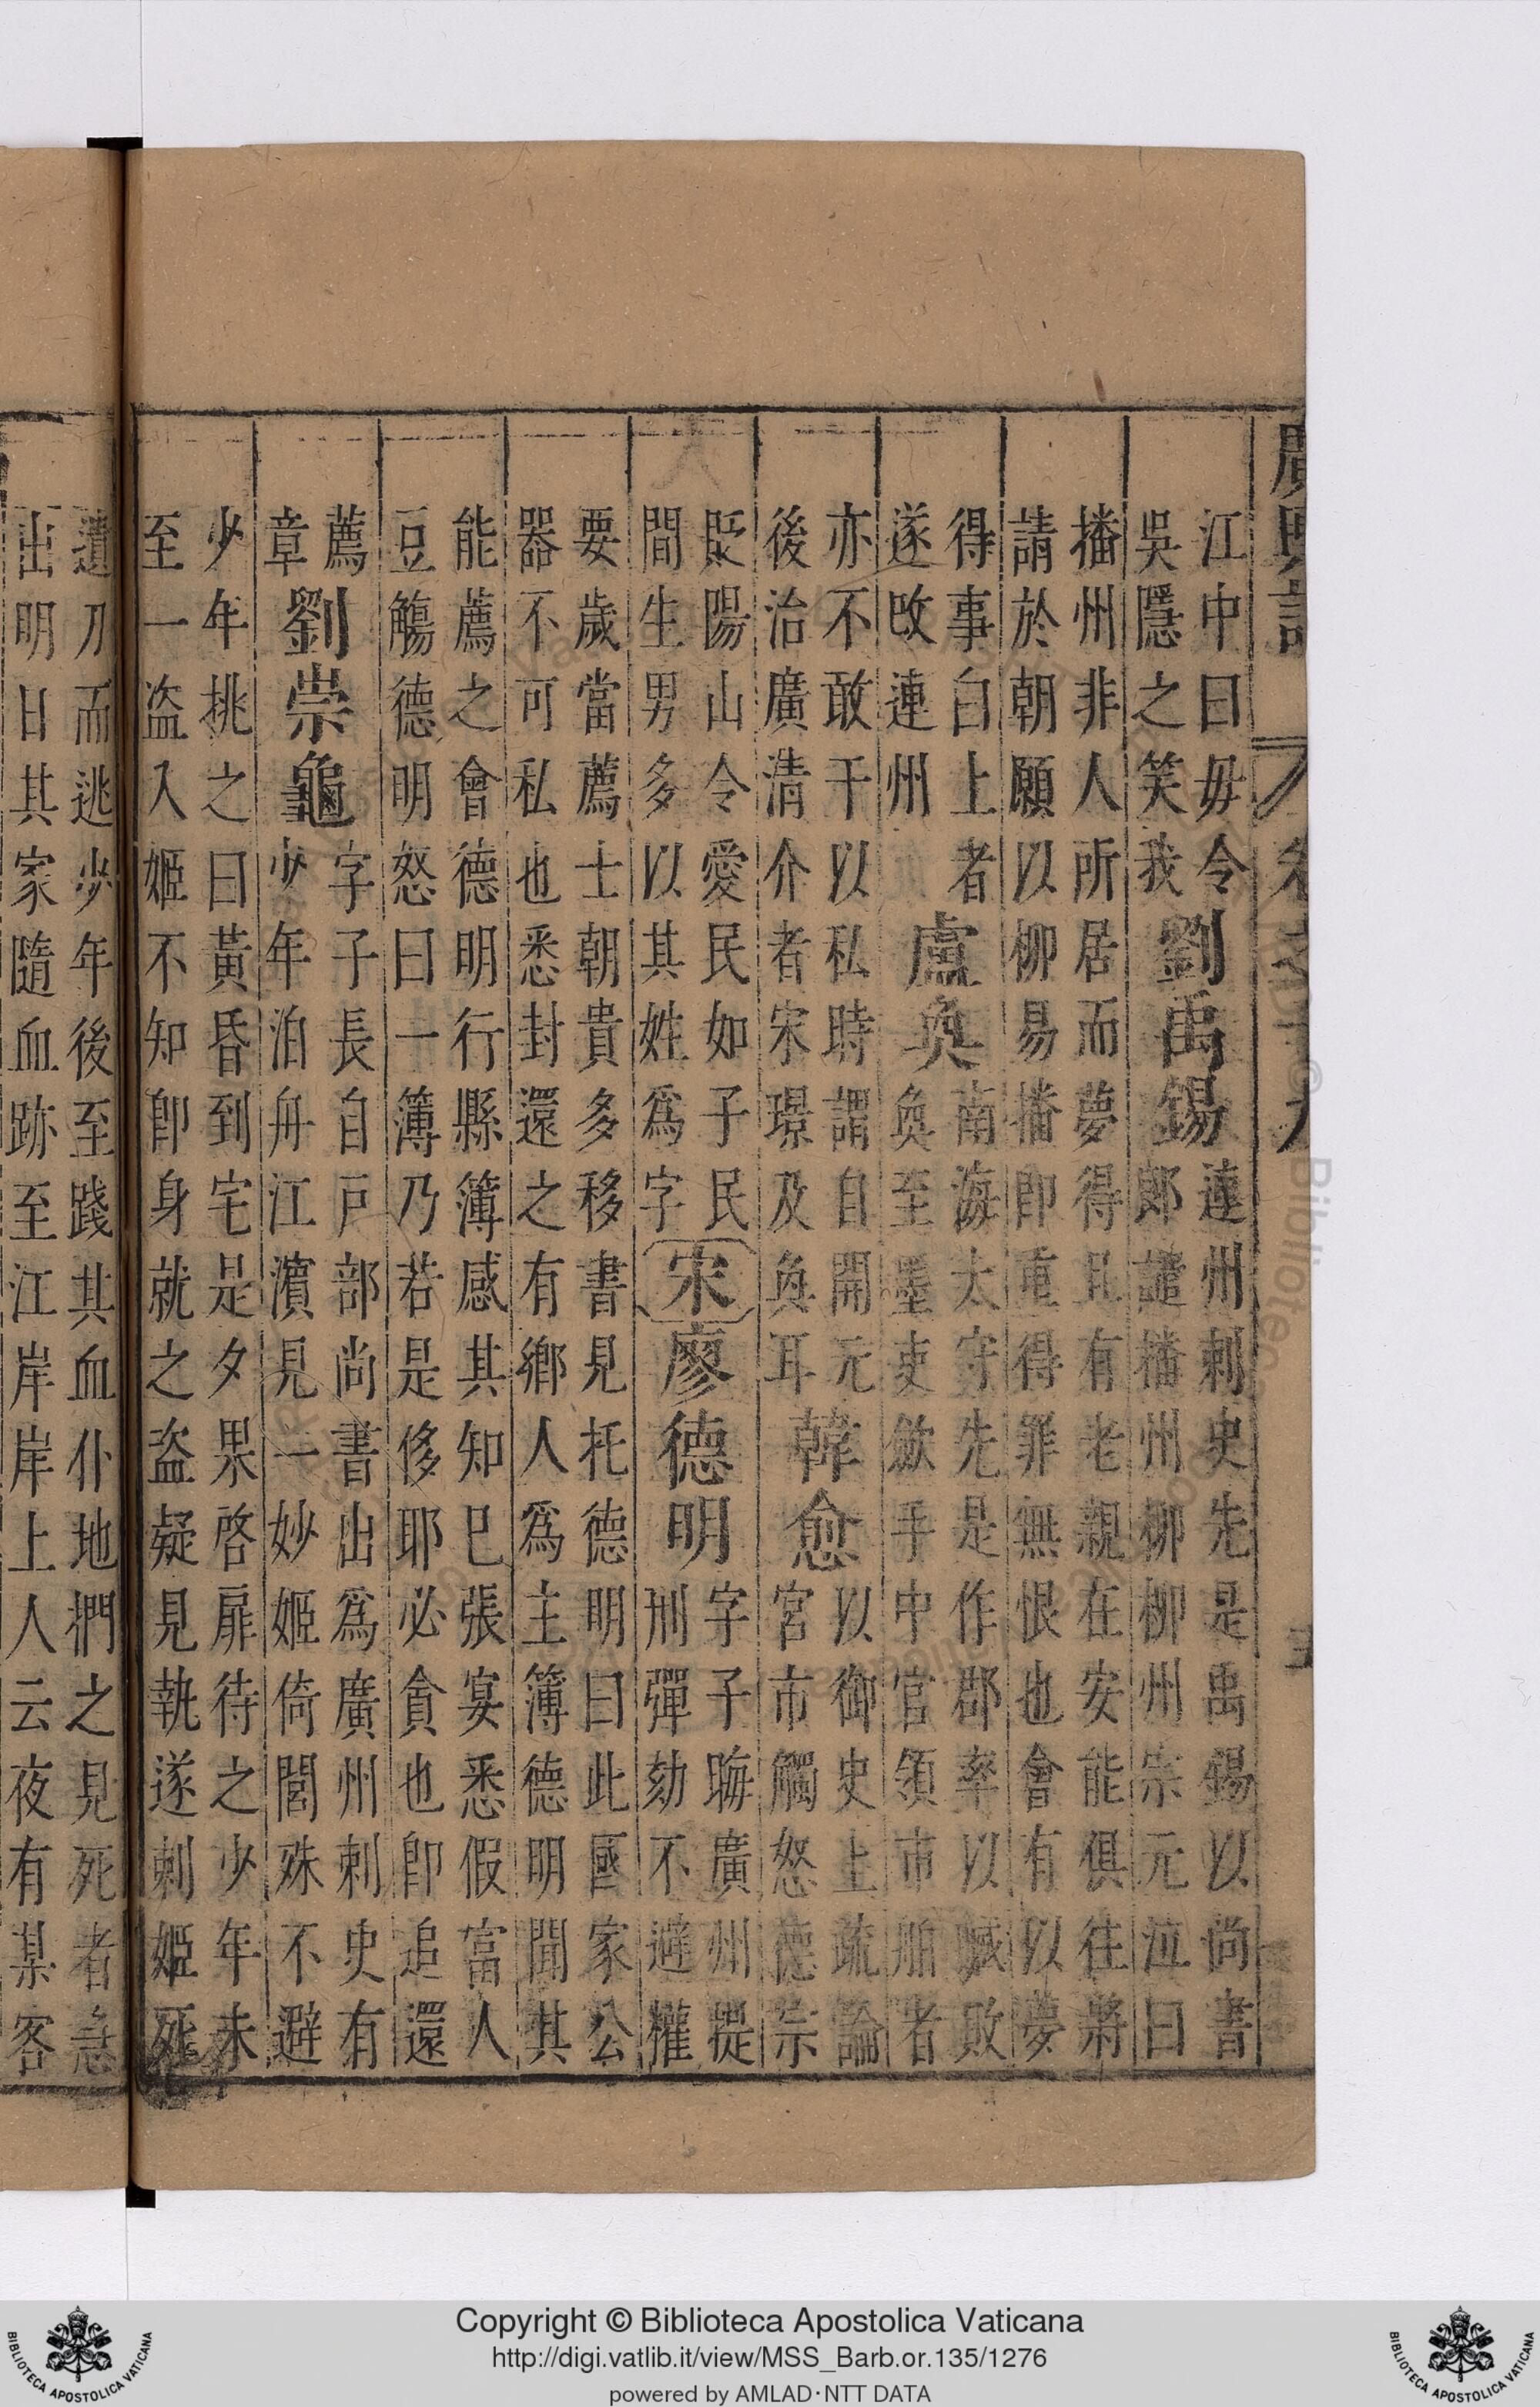 廣輿記
江中曰毋令
吳隱之笑我
劉禹錫
連州刺史先是禹錫以尚書
郎謫播州柳柳州宗元泣曰
播州非人所居而夢得且有老親在安能俱往將
請於朝願以柳易播即重得罪無恨也會有以夢
得事白上者
遂改連州
盧奐
南海太守先是作郡率以贓敗
奐至墨吏斂手中官領市舶者
亦不敢干以私時謂自開元
後治廣清介者宋璟及奐耳
韓愈
以御史上疏論
宮市觸怒德宗
貶陽山令愛民如子民
間生男多以其姓爲字
宋
廖德明
字子晦廣州提
刑彈劾不避權
要歲當薦士朝貴多移書見托德明曰此國家公
器不可私也悉封還之有鄉人爲主簿德明聞其
能薦之會德明行縣簿感其知已張宴悉假富人
豆觴德明怒曰一簿乃若是侈耶必貪也即追還
薦
章
劉崇龜
字子長自戶部尚書出爲廣州刺史有
少年泊舟江濵見一妙姬倚閭殊不避
少年挑之曰黃昏到宅是夕果啓扉待之少年未
至一盜入姬不知即身就之盜疑見執遂刺姬死
遺刀而逃少年後至踐其血仆地捫之見死者急
出明日其家隨血跡至江岸岸上人云夜有某客
Copyright © Biblioteca Apostolica Vaticana
http://digi.vatlib.it/view/MSS_Barb.or.135/1276
powered by AMLAD·NTT DATA
BIBLIOTECA APOSTOLICA VATICANA
BIBLIOTECA APOSTOLICA VATICANA